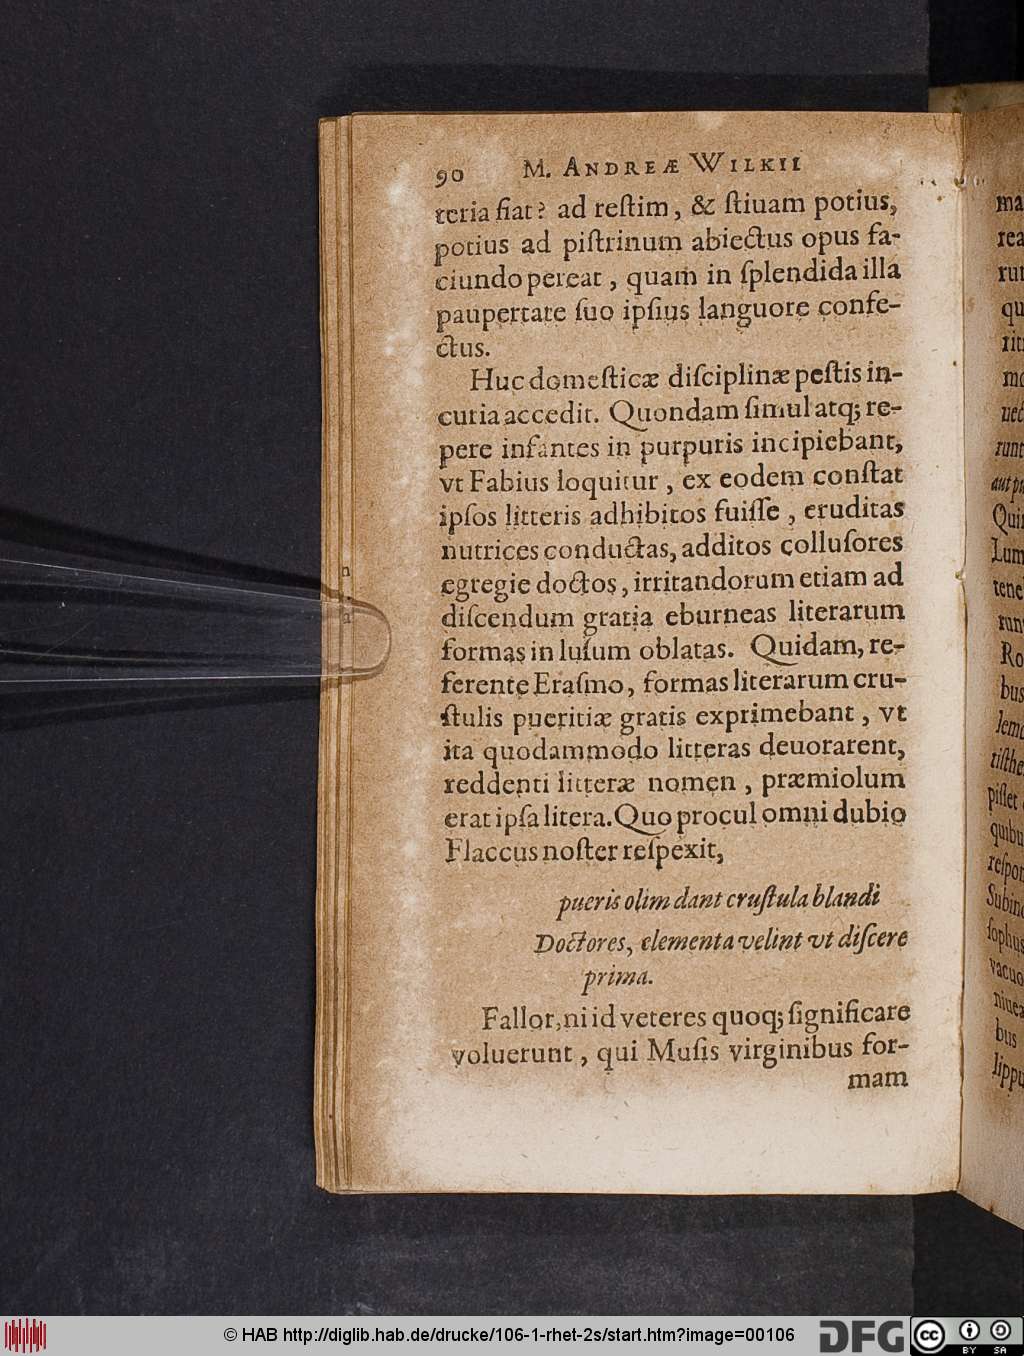 90 M. ANDREÆ WILKII
teria fiat? ad reſtim, & ſtiuam potius,
potius ad piſtrinum abiectus opus fa-
ciundo pereat, quam in ſplendida illa
paupertate ſuo ipſius languore confe-
ctus.
Huc domeſticæ diſciplinæ peſtis in-
curia accedit. Quondam ſimul atq; re-
pere infantes in purpuris incipiebant,
vt Fabius loquitur, ex eodem conſtat
ipſos litteris adhibitos fuiſſe, eruditas
nutrices conductas, additos colluſores
egregie doctos, irritandorum etiam ad
diſcendum gratia eburneas literarum
formas in luſum oblatas. Quidam, re-
ferente Eraſmo, formas literarum cru-
ſtulis pueritiæ gratis exprimebant, vt
ita quodammodo litteras deuorarent,
reddenti litteræ nomen, præmiolum
erat ipſa litera. Quo procul omni dubio
Flaccus noſter reſpexit,
pueris olim dant cruſtula blandi
Doctores, elementa velint vt diſcere
prima.
Fallor, ni id veteres quoq; ſignificare
voluerunt, qui Muſis virginibus for-
mam
ma
rea
qu
mo
Lum
tene
Ro
bus
piſtet
quibu
reſpon
Subin
ſophus
vacuo
niuea
bus
lippu
© HAB http://diglib.hab.de/drucke/106-1-rhet-2s/start.htm?image=00106
DFG
cc BY SA